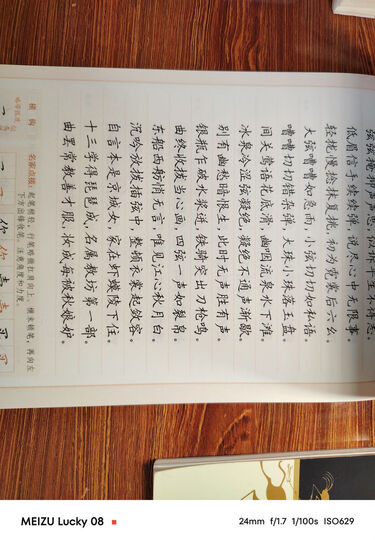 弦弦掩抑声声思,似诉平生不得志。
低眉信手续续弹,说尽心中无限事。
轻拢慢捻抹复挑,初为霓裳后六幺。
大弦嘈嘈如急雨,小弦切切如私语。
嘈嘈切切错杂弹,大珠小珠落玉盘。
间关莺语花底滑,幽咽流泉水下滩。
冰泉冷涩弦凝绝,凝绝不通声渐歇。
别有幽愁暗恨生,此时无声胜有声。
银瓶乍破水浆迸,铁骑突出刀枪鸣。
曲终收拨当心画,四弦一声如裂帛。
东船西舫悄无言,唯见江心秋月白。
沉吟放拨插弦中,整顿衣裳起敛容。
自言本是京城女,家在虾蟆陵下住。
十三学得琵琶成,名属教坊第一部。
曲罢常教善才服,妆成每被秋娘妒。
横钩
名家点拨:起笔稍轻,行笔略带扛肩向上,横末顿笔,再向左
下方出锋收笔。注意角度和力度。
MEIZU Lucky 08
24mm f/1.7 1/100s ISO629